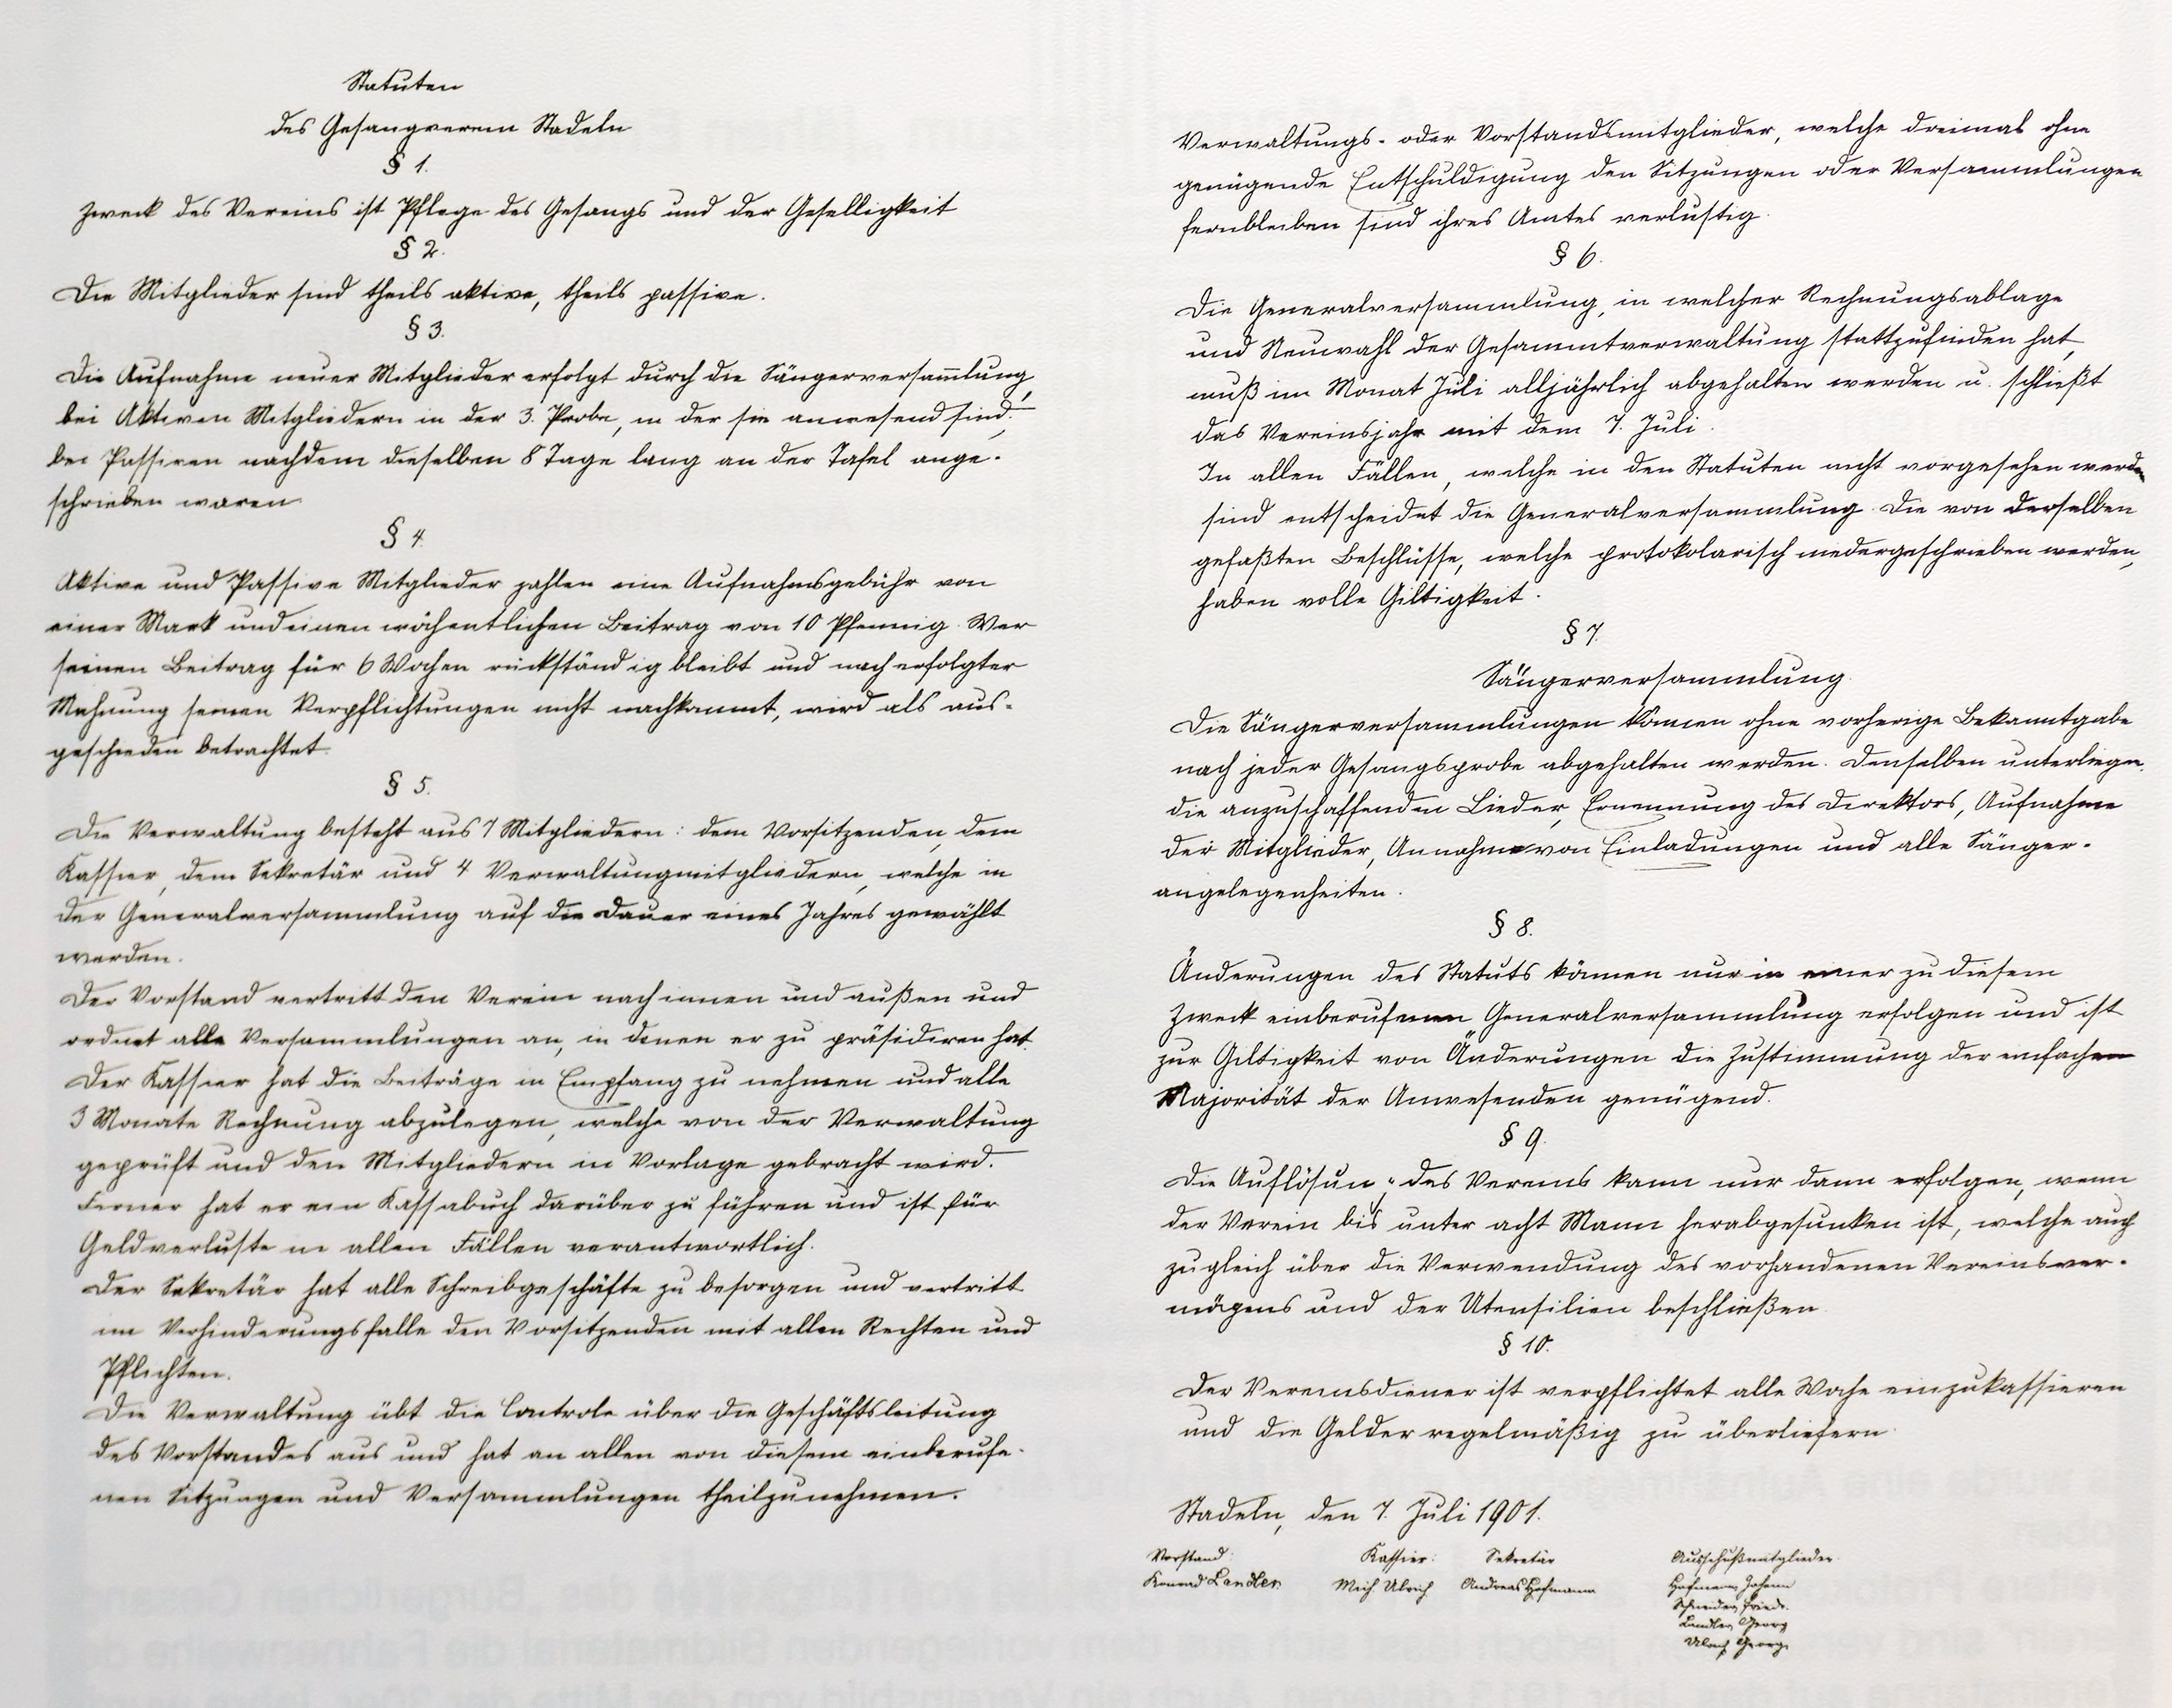 Statuten
des Gesangverein Stadeln
§ 1.
Zweck des Vereins ist Pflege des Gesangs und der Geselligkeit
§ 2.
Die Mitglieder sind theils aktive, theils passive.
§ 3.
Die Aufnahme neuer Mitglieder erfolgt durch die Sängerversam̅lung,
bei Aktiven Mitgliedern in der 3. Probe, in der sie anwesend sind;
bei Passiven nachdem dieselben 8 Tage lang an der Tafel ange-
schrieben waren
§ 4.
Aktive und Passive Mitglieder zahlen eine Aufnahmsgebühr von
einer Mark und einen wöchentlichen Beitrag von 10 Pfennig. Wer
seinen Beitrag für 6 Wochen rückständig bleibt und nach erfolgter
Mahnung seinen Verpflichtungen nicht nachkommt, wird als aus-
geschieden betrachtet.
§ 5.
Die Verwaltung besteht aus 7 Mitgliedern: dem Vorsitzenden, dem
Kassier, dem Sekretär und 4 Verwaltungmitgliedern, welche in
der Generalversammlung auf die Dauer eines Jahres gewählt
werden.
Der Vorstand vertritt den Verein nach innen und außen und
ordnet alle Versammlungen an, in denen er zu präsidiren hat.
Der Kassier hat die Beiträge in Empfang zu nehmen und alle
3 Monate Rechnung abzulegen, welche von der Verwaltung
geprüft und den Mitgliedern in Vorlage gebracht wird.
Ferner hat er ein Kassabuch darüber zu führen und ist für
Geldverluste in allen Fällen verantwortlich.
Der Sekretär hat alle Schreibgeschäfte zu besorgen und vertritt
im Verhinderungsfalle den Vorsitzenden mit allen Rechten und
Pflichten.
Die Verwaltung übt die Controle über die Geschäftsleitung
des Vorstandes aus und hat an allen von diesem einberufe-
nen Sitzungen und Versammlungen theilzunehmen.
Verwaltungs- oder Vorstandsmitglieder, welche dreimal ohne
genügende Entschuldigung den Sitzungen oder Versammlungen
fernbleiben sind ihres Amtes verlustig.
§ 6.
Die Generalversammlung, in welcher Rechnungsablage
und Neuwahl der Gesammtverwaltung stattzufinden hat,
muß im Monat Juli alljährlich abgehalten werden u. schließt
das Vereinsjahr mit dem 7. Juli.
In allen Fällen, welche in den Statuten nicht vorgesehen werden
sind entscheidet die Generalversammlung. Die von derselben
gefaßten Beschlüsse, welche protokolarisch niedergeschrieben werden,
haben volle Giltigkeit.
§ 7.
Sängerversammlung.
Die Sängerversammlungen können ohne vorherige Bekanntgabe
nach jeder Gesangsprobe abgehalten werden. Denselben unterliegen
die anzuschaffenden Lieder, Ernennung des Direktors, Aufnahme
der Mitglieder, Annahme von Einladungen und alle Sänger-
angelegenheiten.
§ 8.
Änderungen des Statuts können nur in einer zu diesem
Zweck einberufenen Generalversammlung erfolgen und ist
zur Giltigkeit von Änderungen die Zustimmung der einfachen
Majorität der Anwesenden genügend.
§ 9.
Die Auflösung des Vereins kann nur dann erfolgen, wenn
der Verein bis unter acht Mann herabgesunken ist, welche auch
zugleich über die Verwendung des vorhandenen Vereinsver-
mögens und der Utensilien beschließen
§ 10.
Der Vereinsdiener ist verpflichtet alle Woche einzukassieren
und die Gelder regelmäßig zu überliefern.
Stadeln, den 7. Juli 1901.
Vorstand: Kassier: Sekretär Ausschußmitglieder
Konrad Landler Mich. Ulrich Andreas Hofmann Hofmann Johann
Schneider Friedr.
Landler Georg
Ulrich Georg